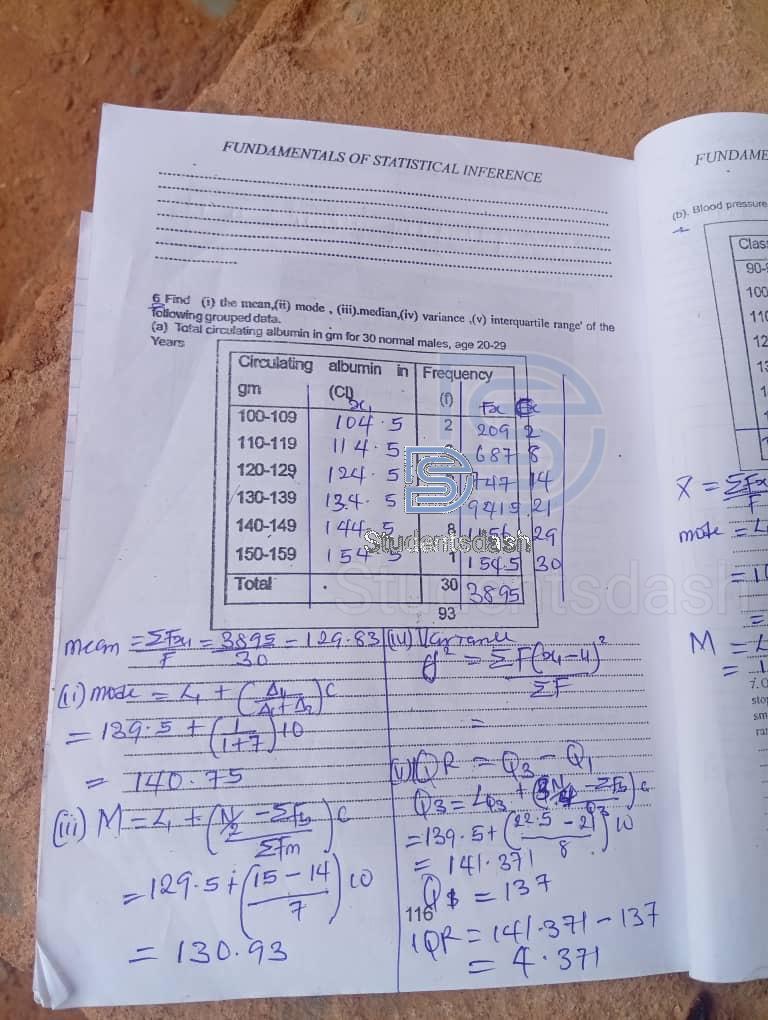 FUNDAMENTALS OF STATISTICAL INFERENCE
6 Find (i) the mean,(ii) mode , (iii).median,(iv) variance ,(v) interquartile range' of the
following grouped data.
(a) Total circulating albumin in gm for 30 normal males, age 20-29
Years
Circulating albumin in gm (CI) Frequency (f)
x₁ Fx
100-109 104.5 2 209 2
110-119 114.5 687 8
120-129 124.5 747 14
130-139 134.5 941.5 21
140-149 144.5 8 1156 29
150-159 154.5 1 154.5 30
Total . 30 3895
93
mean = ΣFx₁/F = 3895/30 = 129.83
(ii) mode = L₁ + (Δ₁/Δ₁+Δ₂)C
= 139.5 + (1/1+7)10
= 140.75
(iii) M = L₁ + (N/2 - ΣFb/ΣFm)C
= 129.5 + (15 - 14/7)10
= 130.93
(iv) Variance
= ΣF(x₁-4)²/ΣF
=
(v) IQR = Q₃ - Q₁
Q₃ = LQ₃ +
= 139.5 + (22.5 - 21/8)10
= 141.371
= 137
IQR = 141.371 - 137
= 4.371
116
FUNDAME
(b). Blood pressure
Clas
90-
100
110
12
X̄ = ΣFx/F
mode = L
= 1
=
M = L
= 1
Studentsdash
Studentsdash